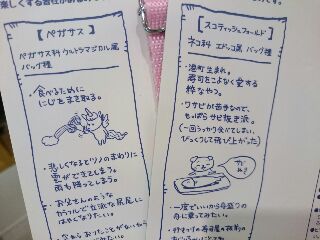 楽しくする責任がある
【ペガサス】
ペガサス科 ウルトラマジカル属
バッグ種
・食べるために
にじをまき取る。
・悲しくなるとツノのまわりに
雲ができてしまう。
雨も降ってしまう。
・お父さんのような
カラフルで立派な尻尾に
はやくなりたい。
【スコティッシュフォールド】
ネコ科 エドッコ属 バッグ種
・港町生まれ。
寿司をこよなく愛する
粋なやつ。
・ワサビが苦手なので、
もっぱらサビ抜き派。
(一回うっかり食べてしまい、
びっくりして飛び上がった)
・一度でいいから舟盛りの
舟に乗ってみたい。